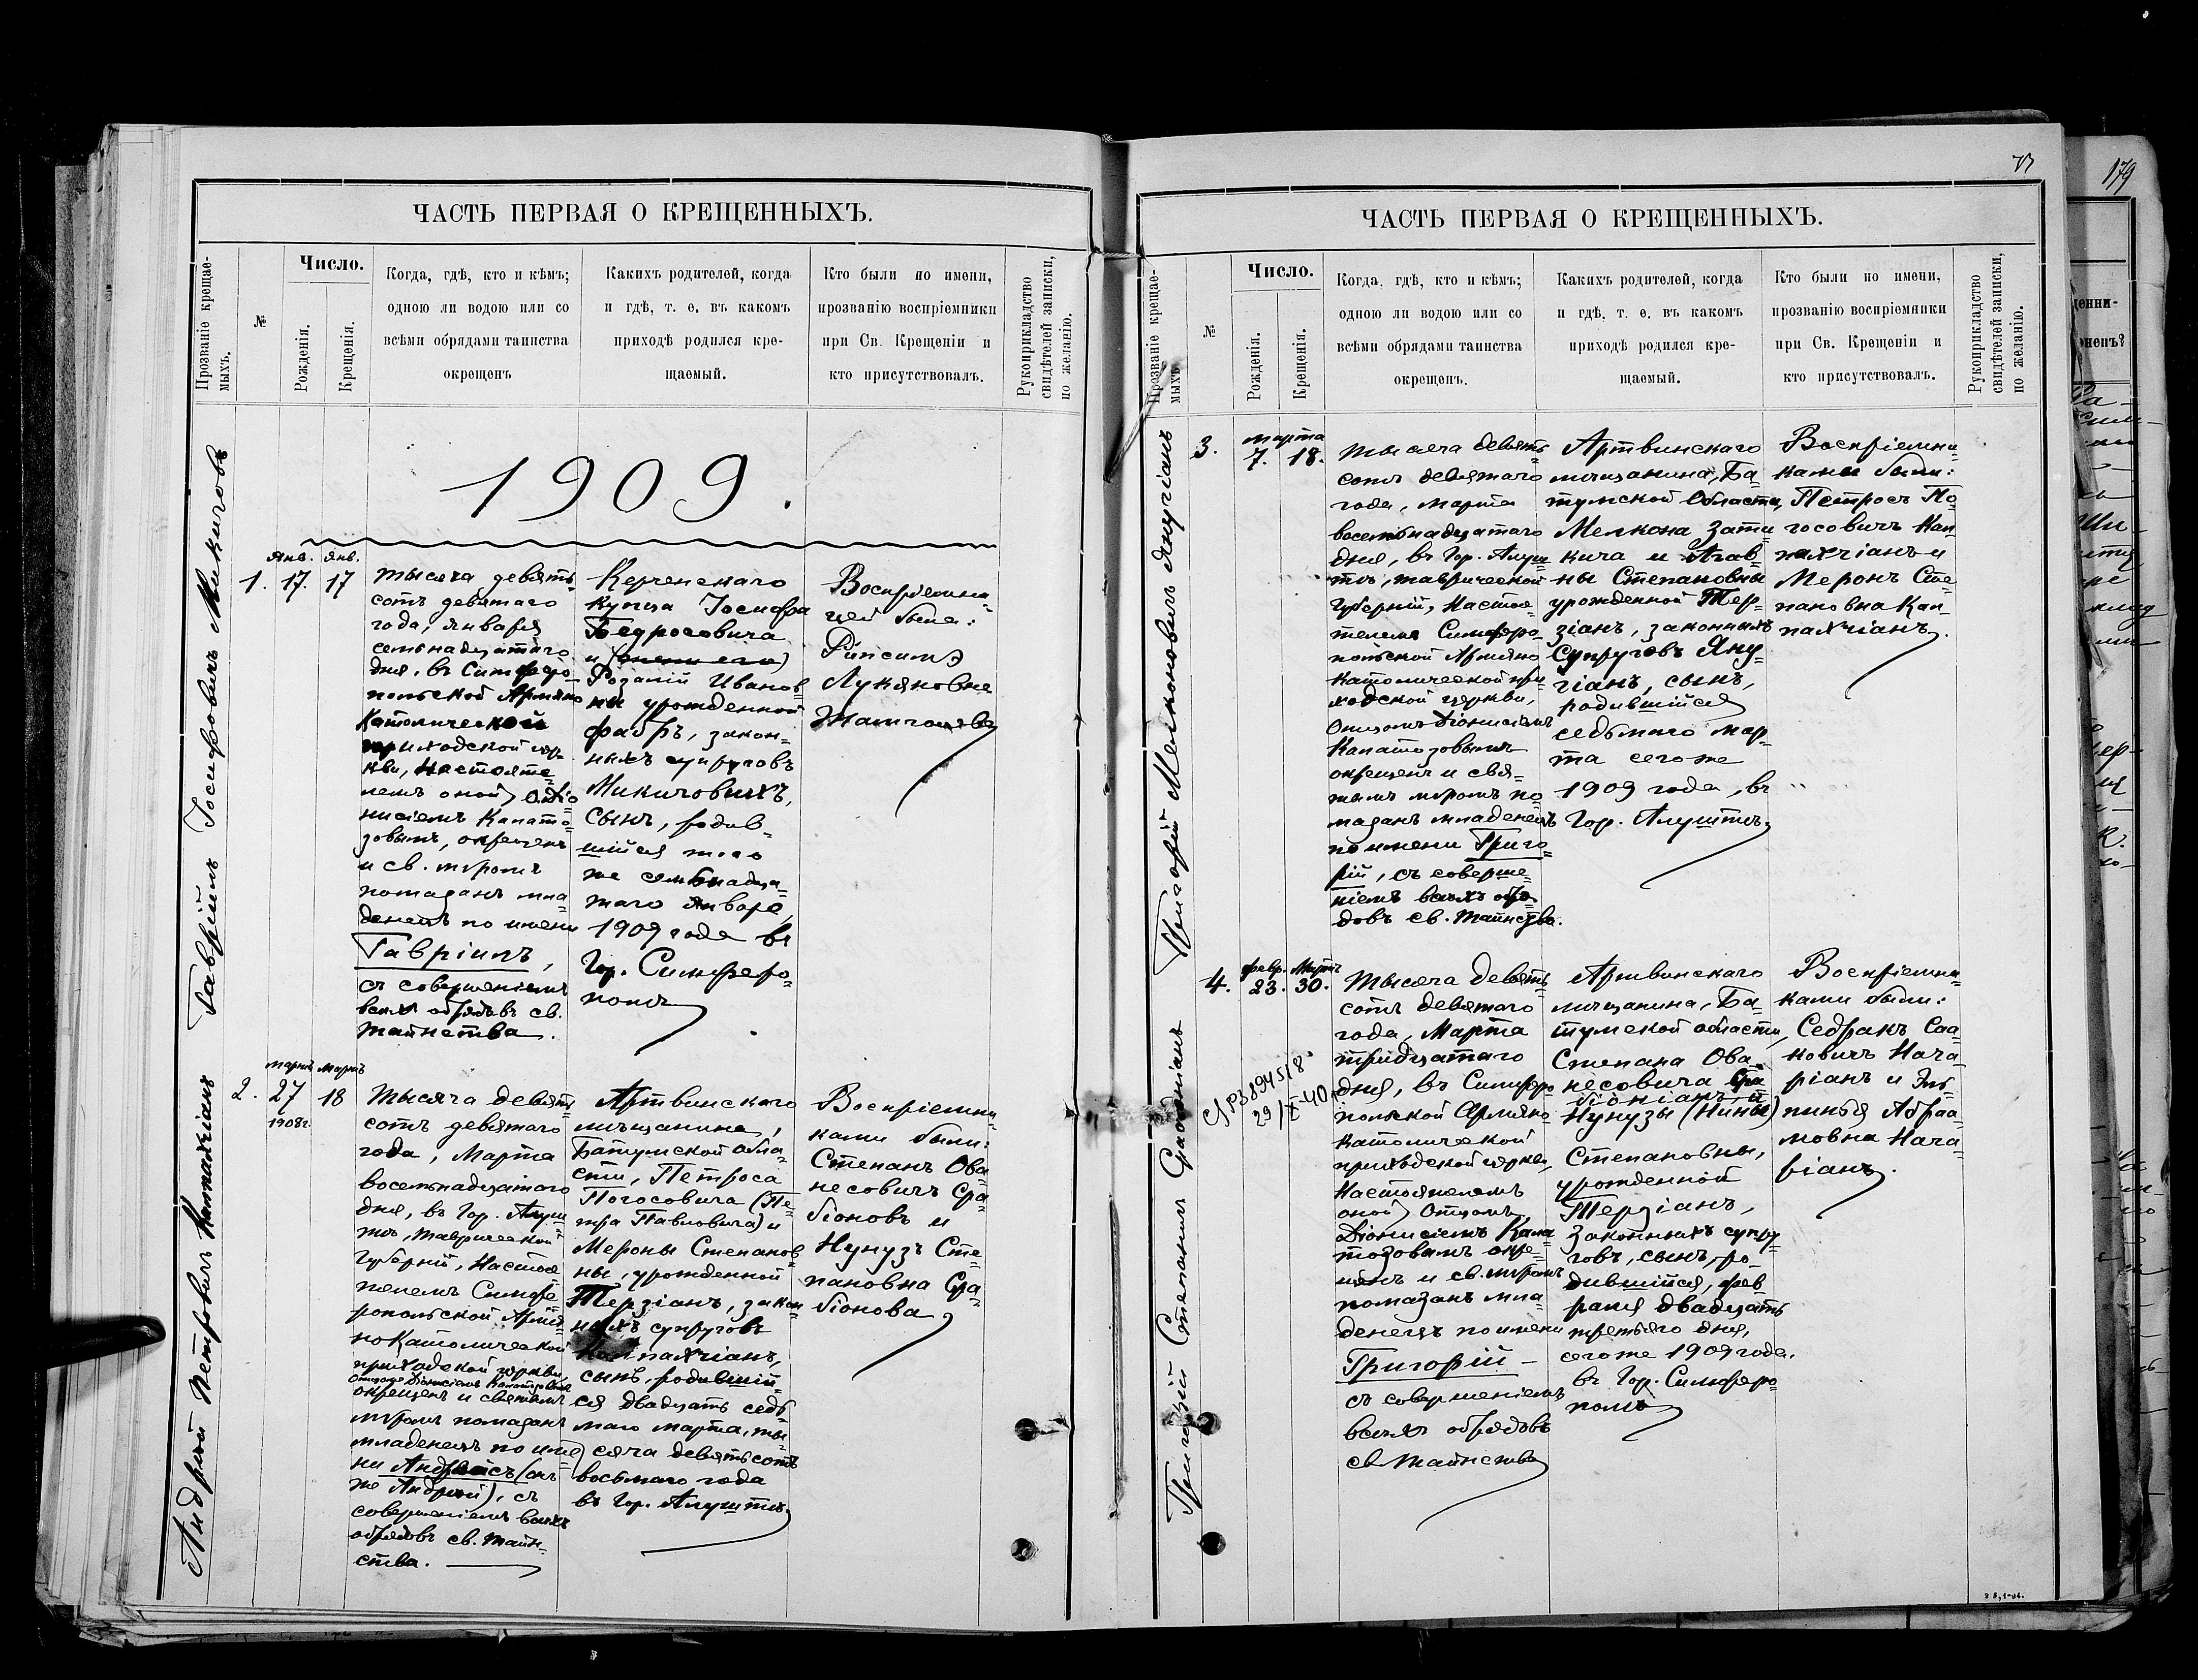 ЧАСТЬ ПЕРВАЯ О КРЕЩЕННЫХЪ.
Прозваніе крещае-
мыхъ.
№
Число.
Рожденія.
Крещенія.
Когда, гдѣ, кто и кѣмъ;
одною ли водою или со
всѣми обрядами таинства
окрещенъ
Какихъ родителей, когда
и гдѣ, т. е. въ какомъ
приходѣ родился кре-
щаемый.
Кто были по имени,
прозванію воспріемники
при Св. Крещеніи и
кто присутствовалъ.
Рукоприкладство
свидѣтелей записки,
по желанію.
1909.
Гавріилъ Іосифовичъ Микиговъ
1.
Янв. Янв.
17. 17
Тысяча девять-
сотъ девятаго
года, января
семнадцатаго
дня, въ Симферо-
польской Армяно
Католической
приходской цер-
кви, Настояте-
лемъ оной О. Діо-
нисіемъ Калато-
зовымъ, окрещенъ
и св. мѵромъ
помазанъ мла-
денецъ по имени
Гавріилъ,
съ совершеніемъ
всѣхъ обрядовъ св.
таинства.
Керченскаго
купца Іосифа
Бедросовича
и
Розаліи Иванов-
ны урожденной
Фабръ, закон-
ныхъ супруговъ
Микиговыхъ,
сынъ, родив-
шійся того
же семнадца-
таго Января,
1909 года въ
Гор. Симферо-
полѣ
Воспріемни-
цей была:
Рипсимэ
Лукяновна
Андрей Петровичъ Каплахчіанъ
2.
Мартъ Мартъ
27 18
1908г.
Тысяча девять-
сотъ девятаго
года, Марта
восемьнадцатаго
дня, въ Гор. Алуш-
тѣ, Таврической
Губерніи, Настоя-
телемъ Симфе-
ропольской Армя-
но Католической
приходской церкви,
Отцомъ Діонисіемъ Калатозовымъ
окрещенъ и святымъ
мѵромъ помазанъ
младенецъ по име-
ни Андреасъ (онъ
же Андрей), съ
совершеніемъ всѣхъ
обрядовъ св. таин-
ства.
Артвинскаго
мѣщанина,
Батумской обла-
сти, Петроса
Погосовича (Пе-
тра Павловича) и
Мероны Степанов-
ны, урожденной
Терзіанъ, закон-
ныхъ супруговъ
сынъ, родившій-
ся двадцать седь-
маго марта, ты-
сяча девятьсотъ
восьмаго года
въ Гор. Алуштѣ
Воспріемни-
ками были:
Степанъ Ова-
несовичъ Сра-
біоновъ и
Нунузъ Сте-
пановна Сра-
біонова
77
ЧАСТЬ ПЕРВАЯ О КРЕЩЕННЫХЪ.
Прозваніе крещае-
мыхъ.
№
Число.
Рожденія.
Крещенія.
Когда, гдѣ, кто и кѣмъ;
одною ли водою или со
всѣми обрядами таинства
окрещенъ.
Какихъ родителей, когда
и гдѣ, т. е. въ какомъ
приходѣ родился кре-
щаемый.
Кто были по имени,
прозванію воспріемники
при Св. Крещеніи и
кто присутствовалъ.
Рукоприкладство
свидѣтелей записки,
по желанію.
Григорій Мелконовичъ Янугіанъ
3.
марта
7. 18.
Тысяча девять-
сотъ девятаго
года, марта
восемьнадцатаго
дня, въ Гор. Алуш-
тѣ, таврической
Губерніи, Настоя-
телемъ Симферо-
польской Армяно
Католической при-
ходской церкви,
Отцомъ Діонисіемъ
Калатозовымъ
окрещенъ и свя-
тымъ мѵромъ по-
мазанъ младенецъ
по имени Григо-
рій, съ соверше-
ніемъ всѣхъ обря-
довъ св. таинства.
Артвинскаго
мѣщанина, Ба-
тумской Области,
Мелкона Зати-
кича и Агав-
ны Степановны
урожденной Тер-
зіанъ, законныхъ
супруговъ Яну-
гіанъ, сынъ,
родившійся
седьмаго мар-
та сего же
1909 года, въ
Гор. Алуштѣ.
Воспріемни-
ками были:
Петросъ По-
госовичъ Кап-
лахчіанъ и
Меронъ Сте-
пановна Кап-
лахчіанъ.
Григорій Степановичъ Срабіоніанъ
4.
февр. Мартъ
23. 30.
29/X-40
Тысяча девять-
сотъ девятаго
года, Марта
тридцатаго
дня, въ Симферо-
польской Армяно-
католической
приходской церкви,
Настоятелемъ
оной Отцомъ
Діонисіемъ Кала-
тозовымъ окре-
щенъ и св. мѵромъ
помазанъ мла-
денецъ по имени
Григорій -
съ совершеніемъ
всѣхъ обрядовъ
св. таинства
Артвинскаго
мѣщанина, Ба-
тумской области,
Степана Ова-
несовича Сра-
біоніанъ и
Нунузы (Нины)
Степановны,
урожденной
Терзіанъ,
законныхъ супру-
говъ, сынъ, ро-
дившійся, фев-
раля двадцать
третьяго дня,
сего же 1909 года.
въ Гор. Симферо-
полѣ
Воспріемни-
ками были:
Седракъ Саа-
ковичъ Нача-
ріанъ и Эль-
пинья Абраа-
мовна Нача-
ріанъ.
179